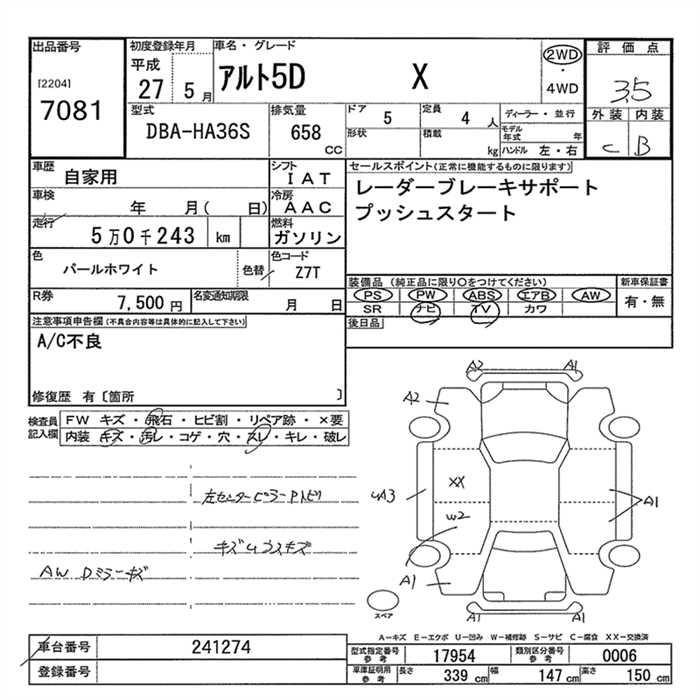 出品番号
[2204]
7081
初度登録年月
平成
27
5月
車名・グレード
アルト5D X
2WD
・
4WD
評価点
3.5
外装 内装
C B
型式
DBA-HA36S
排気量
658
CC
ドア 5
定員 4 人
形状
積載
kg
ディーラー・並行
モデル年式 年
ハンドル 左・右
車歴
自家用
シフト
IAT
車検
年 月( 日)
冷房
AAC
走行
5万0千243 km
燃料
ガソリン
色
パールホワイト
色替
色コード
Z7T
R券
7,500円
名変通知期限
月 日
セールスポイント(正常に機能するものに限ります)
レーダーブレーキサポート
プッシュスタート
装備品(純正品に限り○をつけてください)
PS PW ABS エアB AW
SR ナビ TV カワ
新車保証書
有・無
後日品
注意事項申告欄(不具合内容等は具体的に記入して下さい)
A/C不良
修復歴 有〔箇所 〕
検査員
記入欄
FW キズ・飛石・ヒビ割・リペア跡・×要
内装・キズ・汚レ・コゲ・穴・スレ・キレ・破レ
左センターピラーPトビ
キズUコスキズ
AW Dミラーキズ
A2
A1
A2
XX
UA3
W2
A1
A1
A1
A1
スペア
A－キズ E－エクボ U－凹み W－補修跡 S－サビ C－腐食 XX－交換済
車台番号
241274
登録番号
型式指定番号
参考
17954
類別区分番号
参考
0006
車庫証明用
参考
長さ 339 cm
幅 147 cm
高さ 150 cm